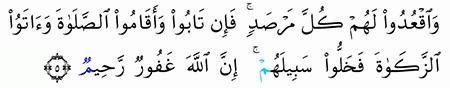 وَٱقْعُدُوا۟ لَهُمْ كُلَّ مَرْصَدٍۢ ۚ فَإِن تَابُوا۟ وَأَقَامُوا۟ ٱلصَّلَوٰةَ وَءَاتَوُا۟
ٱلزَّكَوٰةَ فَخَلُّوا۟ سَبِيلَهُمْ ۚ إِنَّ ٱللَّهَ غَفُورٌۭ رَّحِيمٌۭ ۝٥